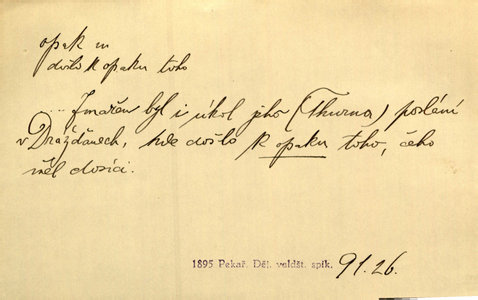 opak m
došlo k opaku toho
... Zmařen byl i úkol jeho (Thurna) poslání
v Drážďanech, kde došlo k opaku toho, čeho
měl docíliti.
1895 Pekař. Děj. valdšt. spik. 91.26.